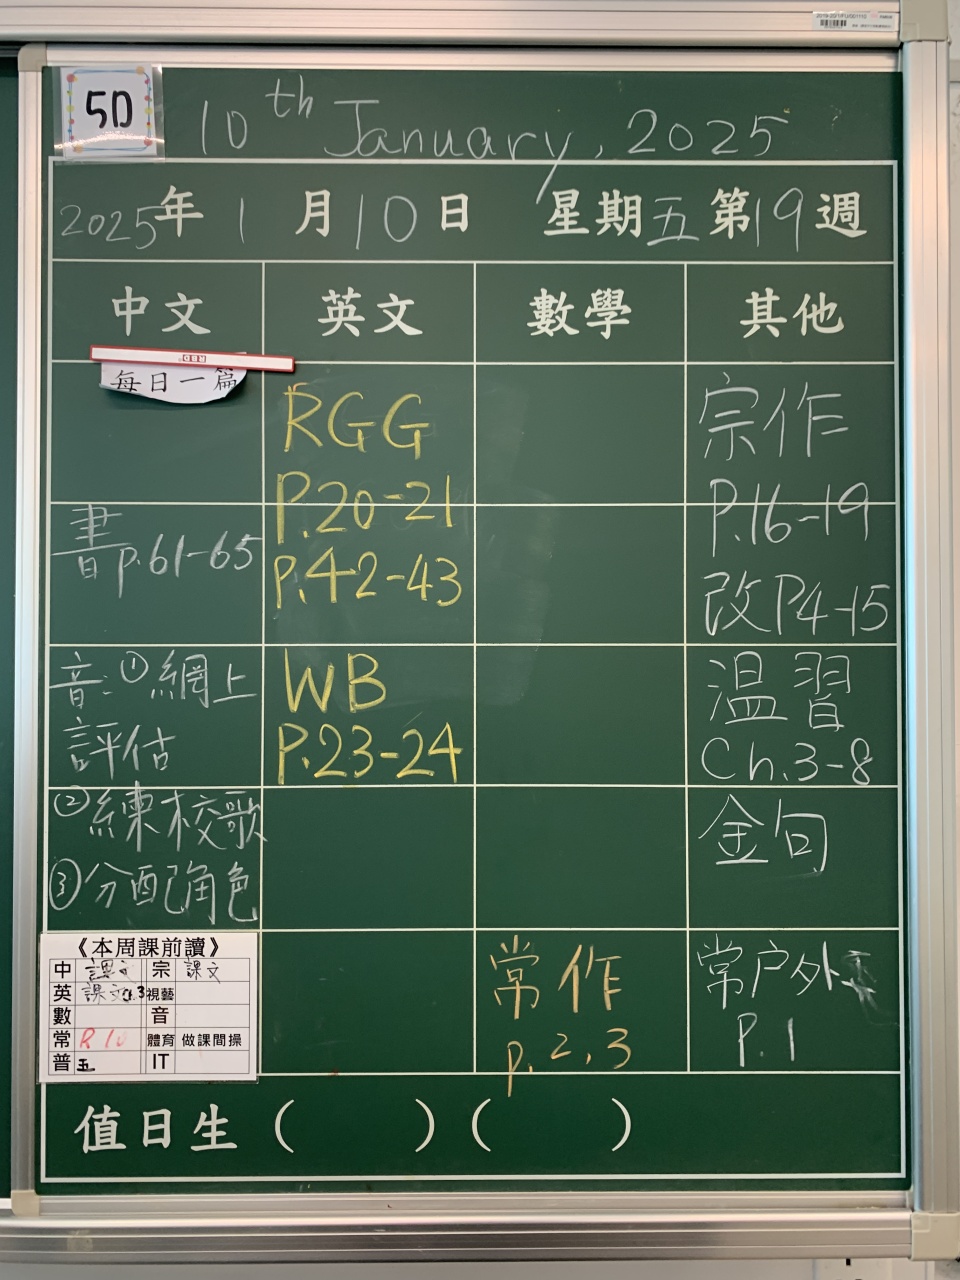 5D
10th January, 2025
2025年1月10日 星期五第19週
中文 英文 數學 其他
每日一篇
書p.61-65
音:①網上
評估
②練校歌
③分配角色
RGG
P.20-21
P.42-43
WB
P.23-24
常作
p.2,3
宗作
P.16-19
改P4-15
温習
Ch.3-8
金句
常户外
P.1
《本周課前讀》
中 課文 宗 課文
英 課文 視藝
數 音
常 體育 做課間操
普 五 IT
值日生( )( )